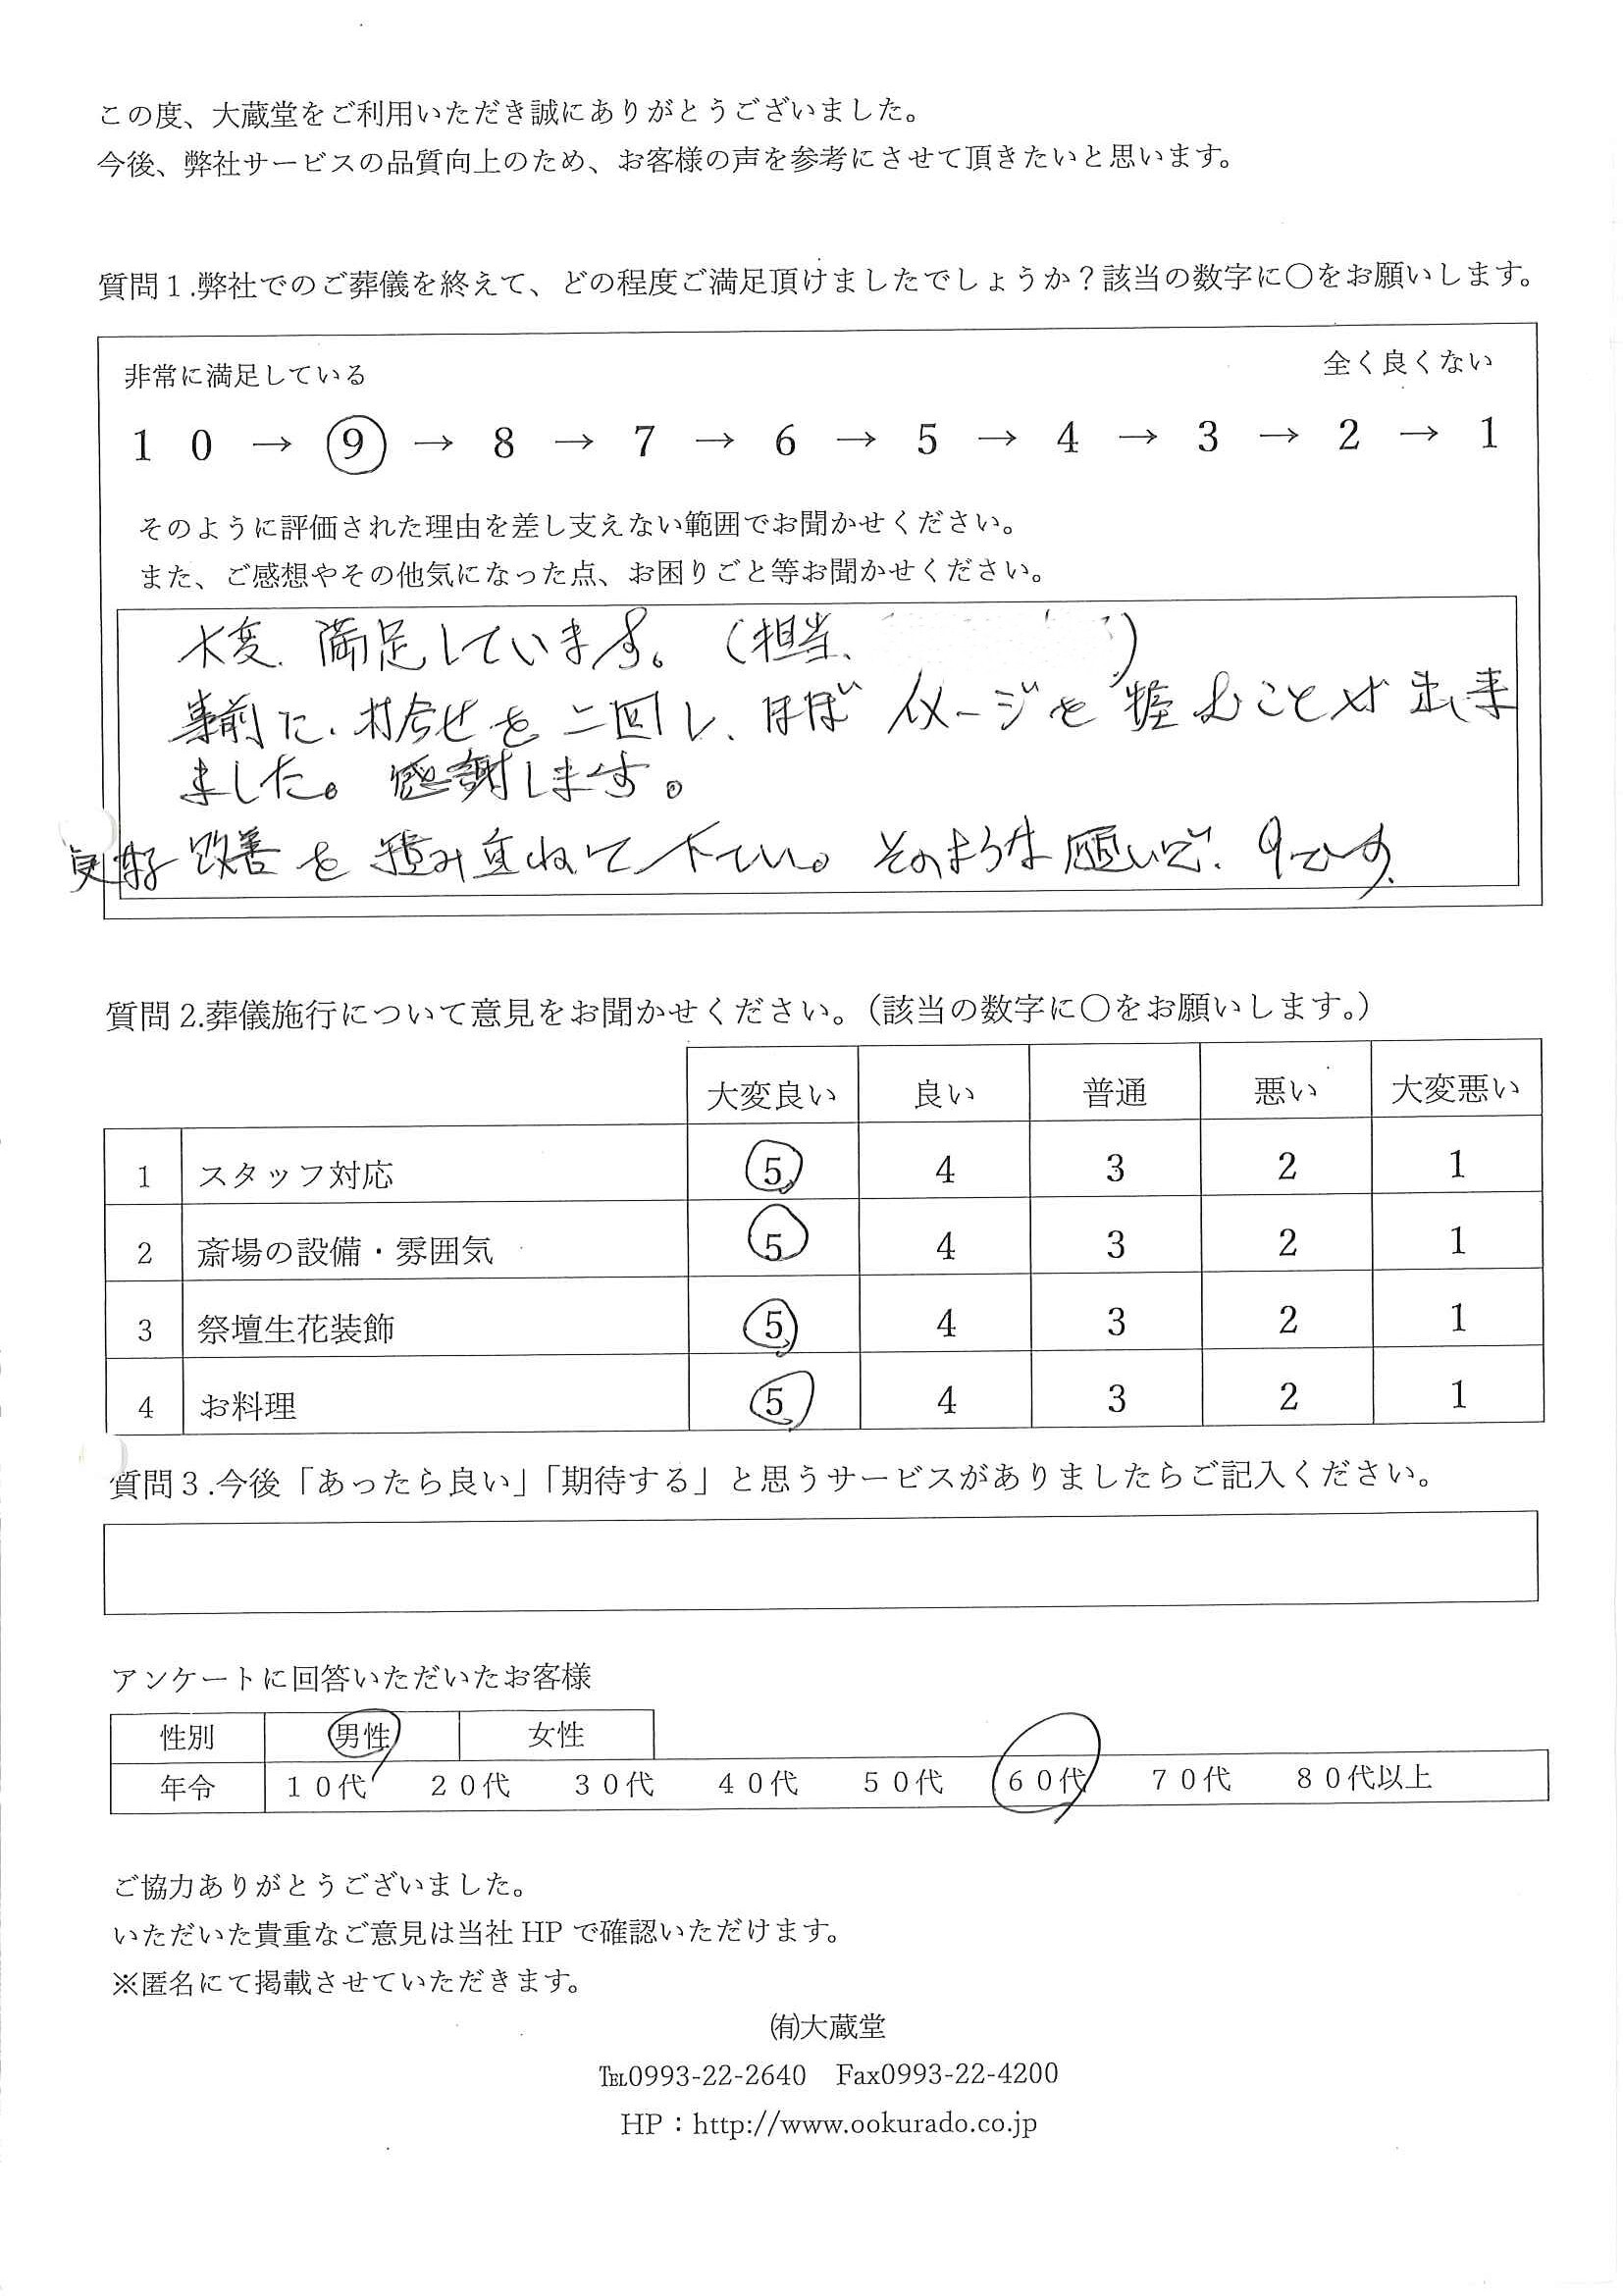 この度、大蔵堂をご利用いただき誠にありがとうございました。
今後、弊社サービスの品質向上のため、お客様の声を参考にさせて頂きたいと思います。
質問1.弊社でのご葬儀を終えて、どの程度ご満足頂けましたでしょうか？該当の数字に〇をお願いします。
非常に満足している 全く良くない
10 → 9 → 8 → 7 → 6 → 5 → 4 → 3 → 2 → 1
そのように評価された理由を差し支えない範囲でお聞かせください。
また、ご感想やその他気になった点、お困りごと等お聞かせください。
大変、満足しています。（担当、 ）
事前に、打合せを二回し、ほぼイメージを掴むことが出来
ました。感謝します。
更なる改善を積み重ねて下さい。そのような願いで、9です。
質問2.葬儀施行について意見をお聞かせください。（該当の数字に〇をお願いします。）
大変良い 良い 普通 悪い 大変悪い
1 スタッフ対応 5 4 3 2 1
2 斎場の設備・雰囲気 5 4 3 2 1
3 祭壇生花装飾 5 4 3 2 1
4 お料理 5 4 3 2 1
質問3.今後「あったら良い」「期待する」と思うサービスがありましたらご記入ください。
アンケートに回答いただいたお客様
性別 男性 女性
年令 10代 20代 30代 40代 50代 60代 70代 80代以上
ご協力ありがとうございました。
いただいた貴重なご意見は当社HPで確認いただけます。
※匿名にて掲載させていただきます。
㈲大蔵堂
℡0993-22-2640 Fax0993-22-4200
HP：http://www.ookurado.co.jp